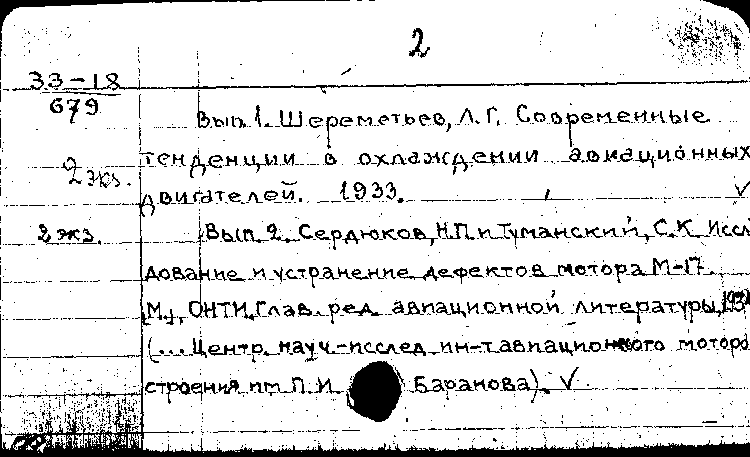 2
33-18
679
Вып 1. Шереметьев, Л. Г. Современные
2 экз. тенденции в охлаждении авиационных
двигателей. 1933.
2 экз. Вып. 2. Сердюков, Н.П. и Туманский, С.К. Иссл
дование и устранение дефектов мотора М-17.
[М.], ОНТИ, Глав. ред. авиационной литературы,
(... Центр. науч.-исслед. ин-т авиационного мотора
строения им. П. И. Баранова).